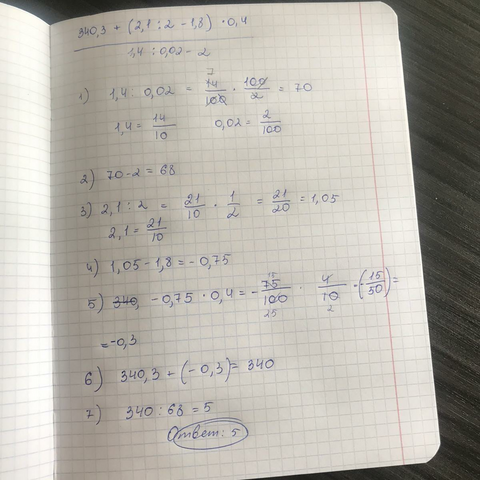 340,3 + (2,1 : 2 - 1,8) · 0,4
1,4 : 0,02 - 2
1) 1,4 : 0,02 = 14/100 · 100/2 = 70
1,4 = 14/10 0,02 = 2/100
2) 70 - 2 = 68
3) 2,1 : 2 = 21/10 · 1/2 = 21/20 = 1,05
2,1 = 21/10
4) 1,05 - 1,8 = - 0,75
5) 340, - 0,75 · 0,4 = - 75/100 · 4/10 = (- 15/50) =
= -0,3
6) 340,3 + (- 0,3) = 340
7) 340 : 68 = 5
Ответ: 5